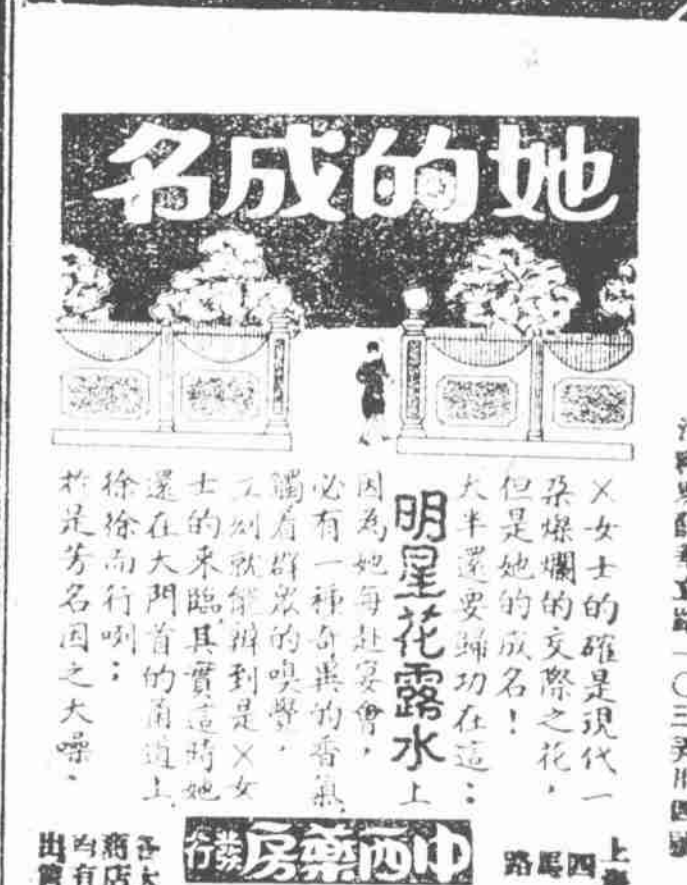 她的成名
X女士的確是現代一
朶燦爛的交際之花，
但是她的成名！
大半還要歸功在這：
明星花露水上
因為她每赴宴會，
必有一種奇異的香氣
觸着群眾的嗅覺，
立刻就能辨到是X女
士的來臨，其實這時她
還在大門首的甬道上
徐徐而行咧；
於是芳名因之大噪．
中西藥房發行
上海
四馬路
各大
商店
均有
出售